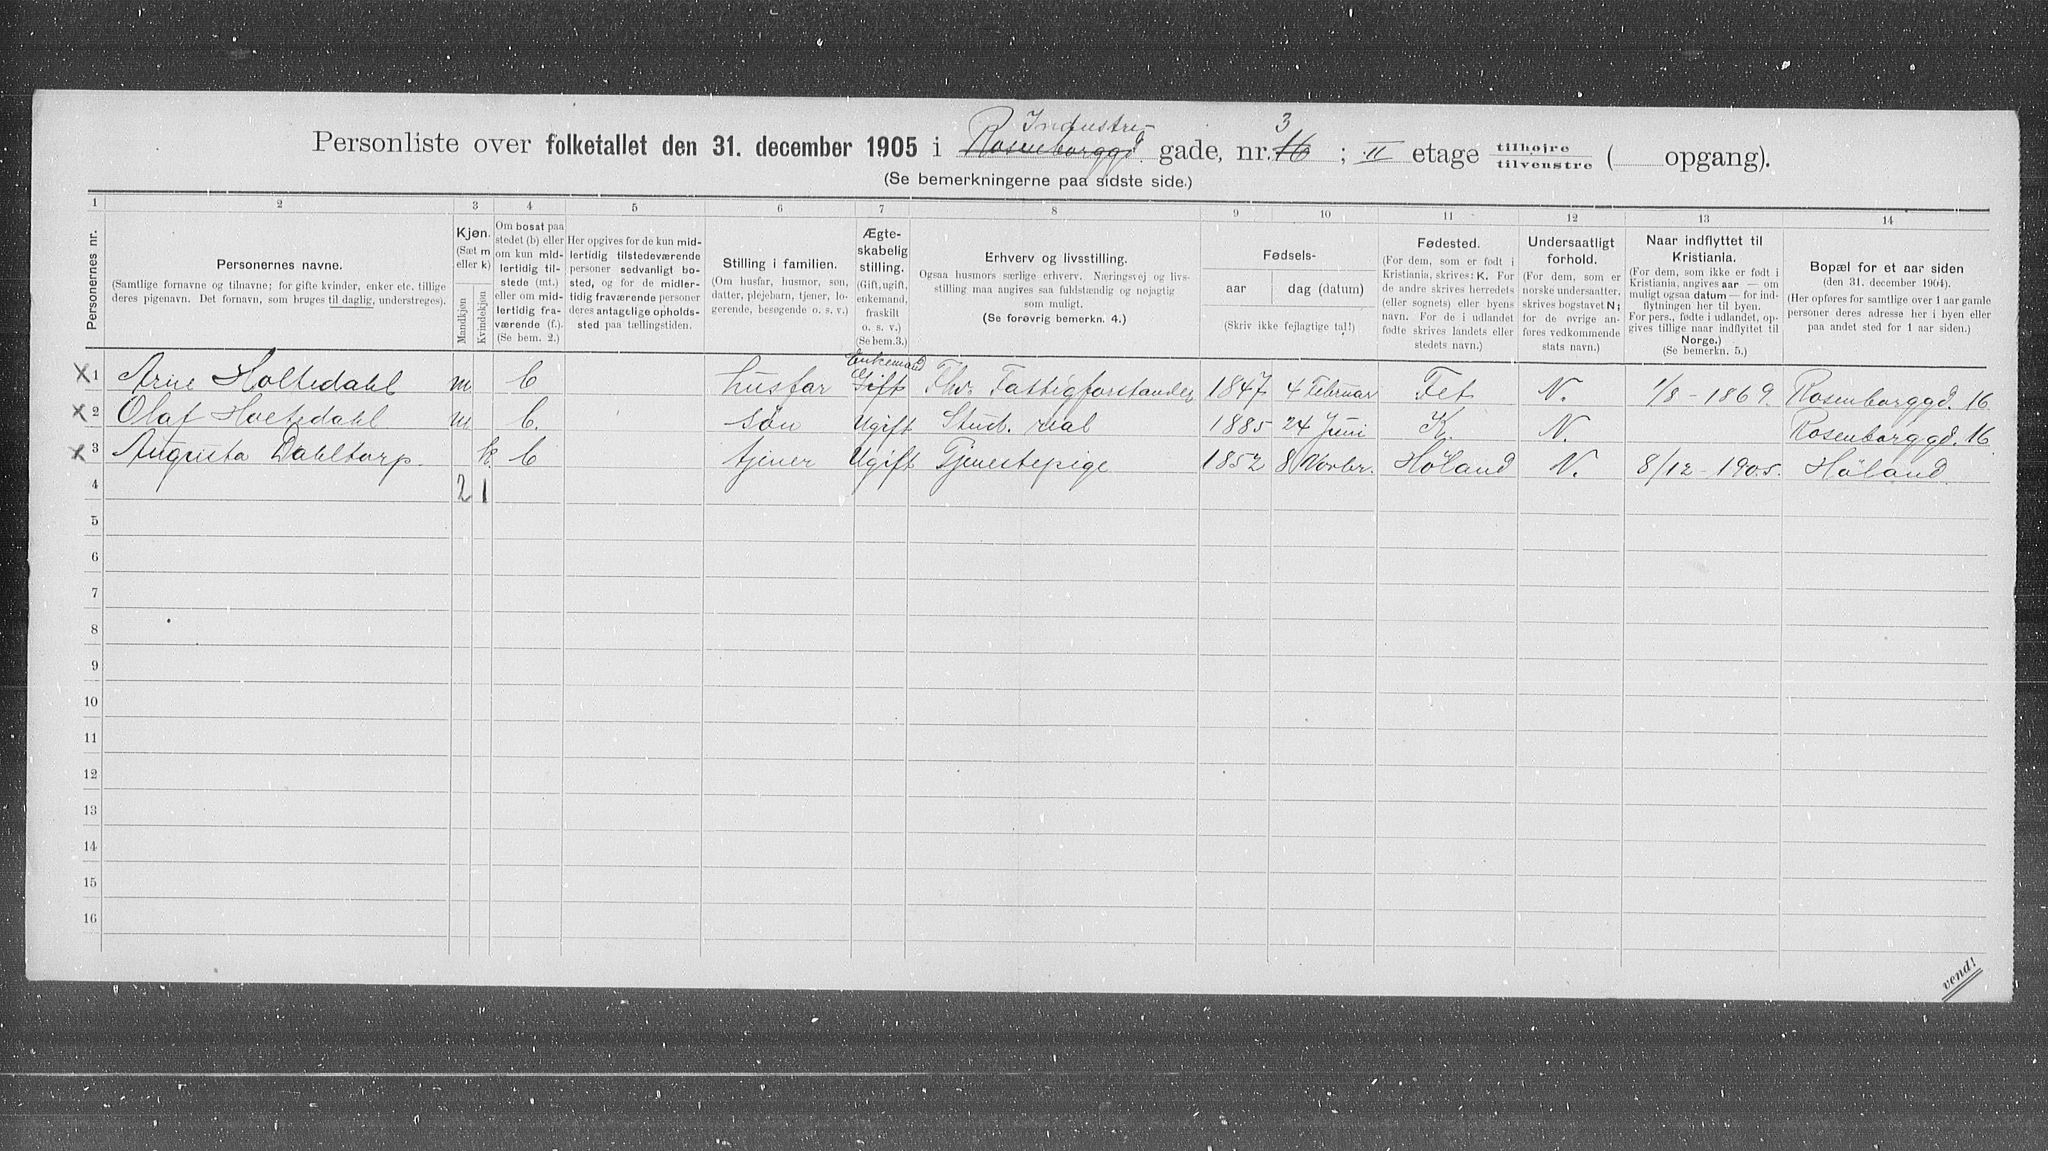 Personliste over folketallet den 31. december 1905 i Rosenborggd. Industri- gade, nr. 16 3 ; II etage tilhøjre tilvenstre ( opgang).
(Se bemerkningerne paa sidste side.)
1 2 3 4 5 6 7 8 9 10 11 12 13 14
Personernes nr.
Personernes navne.
(Samtlige fornavne og tilnavne; for gifte kvinder, enker etc. tillige
deres pigenavn. Det fornavn, som bruges til daglig, understreges).
Kjøn.
(Sæt m
eller k)
Mandkjøn
Kvindekjøn
Om bosat paa
stedet (b) eller
om kun mid-
lertidig til-
stede (mt.)
eller om mid-
lertidig fra-
værende (f.)
(Se bem. 2.)
Her opgives for de kun mid-
lertidig tilstedeværende
personer sedvanligt bo-
sted, og for de midler-
tidig fraværende personer
deres antagelige opholds-
sted paa tællingstiden.
Stilling i familien.
(Om husfar, husmor, søn,
datter, plejebarn, tjener, lo-
gerende, besøgende o. s. v.)
Ægte-
skabelig
stilling.
(Gift, ugift,
enkemand,
fraskilt
o. s. v.)
(Se bem.3.)
Erhverv og livsstilling.
Ogsaa husmors særlige erhverv. Næringsvej og livs-
stilling maa angives saa fuldstændig og nøjagtig
som muligt.
(Se forøvrig bemerkn. 4.)
Fødsels-
aar
dag (datum)
(Skriv ikke fejlagtige tal!)
Fødested.
(For dem, som er født i
Kristiania, skrives: K. For
de andre skrives herredets
(eller sognets) eller byens
navn. For de i udlandet
fødte skrives landets eller
stedets navn.)
Undersaatligt
forhold.
(For dem, som er
norske undersaatter,
skrives bogstavet N;
for de øvrige an-
føres vedkommende
stats navn.)
Naar indflyttet til
Kristiania.
(For dem, som ikke er født i
Kristiania, angives aar — om
muligt ogsaa datum — for ind-
flytningen her til byen.
For pers., fødte i udlandet, op-
gives tillige naar indflyttet til
Norge.)
(Se bemerkn. 5.)
Bopæl for et aar siden
(den 31. december 1904).
(Her opføres for samtlige over 1 aar gamle
personer deres adresse her i byen eller
paa andet sted for 1 aar siden.)
X 1 Arne Holtedahl m b husfar Gift Enkemand Fhv. Fattigforstander 1847 4 Februar Fet N. 1/8 - 1869. Rosenborggd. 16
X 2 Olaf Holtedahl m b. søn Ugift Stud. real 1885 24 Juni K. N. Rosenborggd. 16
X 3 Augusta Dahltorp. k. b tjener Ugift Tjenestepige 1852 8 Novbr. Høland N. 8/12 - 1905. Høland
4 2 1
5
6
7
8
9
10
11
12
13
14
15
16
vend!